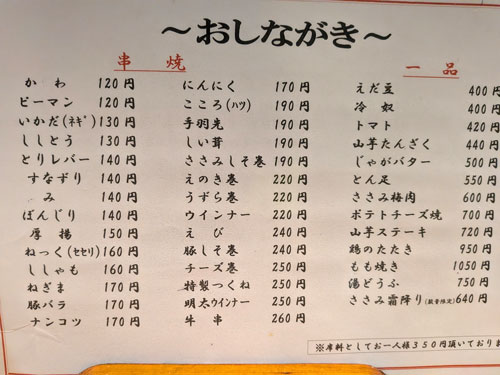 ～おしながき～
串焼
かわ 120円
ピーマン 120円
いかだ(ネギ) 130円
ししとう 130円
とりレバー 140円
すなずり 140円
み 140円
ぼんじり 140円
厚揚 150円
ねっく(セセリ) 160円
ししゃも 160円
ねぎま 170円
豚バラ 170円
ナンコツ 170円
にんにく 170円
こころ(ハツ) 190円
手羽先 190円
しい茸 190円
ささみしそ巻 190円
えのき巻 220円
うずら巻 220円
ウインナー 220円
えび 240円
豚しそ巻 240円
チーズ巻 250円
特製つくね 250円
明太ウインナー 250円
牛串 260円
一品
えだ豆 400円
冷奴 400円
トマト 420円
山芋たんざく 440円
じゃがバター 500円
とん足 550円
ささみ梅肉 600円
ポテトチーズ焼 700円
山芋ステーキ 720円
鶏のたたき 950円
もも焼き 1050円
湯どうふ 750円
ささみ霜降り(数量限定) 640円
※席料としてお一人様350円頂いておりま